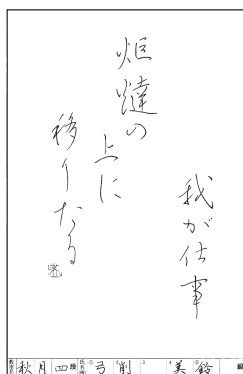 我が仕事
炬燵の
上に
移りたる
秋月 四段 弓削 美鈴